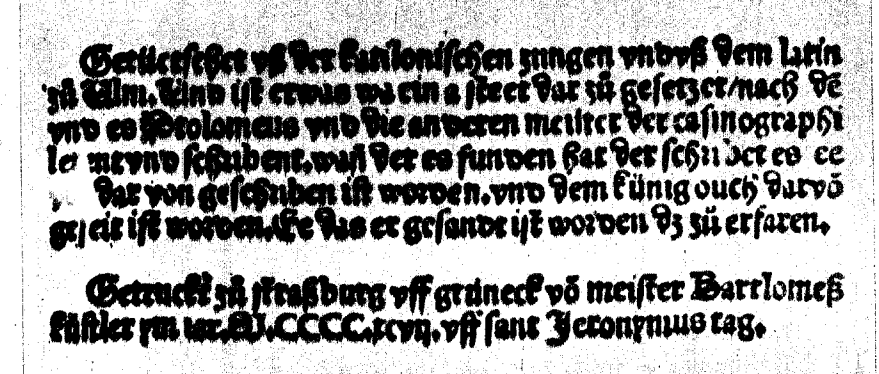 Getütschet vß der katilonischen zungen vnd vß dem latin
zů Ulm. Und ist etwas wa ein a steet dar zů gesetzet/nach dē
vnd es Ptolomeus vnd die anderen meister der casmographi
le vnd schribent. wañ der es funden hat der es ee
dar von geschriben ist worden. vnd dem künig ouch darvō
geseit ist worden. Ee das er gesandt ist worden dz zů erfaren.
Getruckt zů straßburg vff grüneck vō meister Bartlomeß
küstler ym iar. M.CCCC.xcvij. vff sant Jeronymus tag.